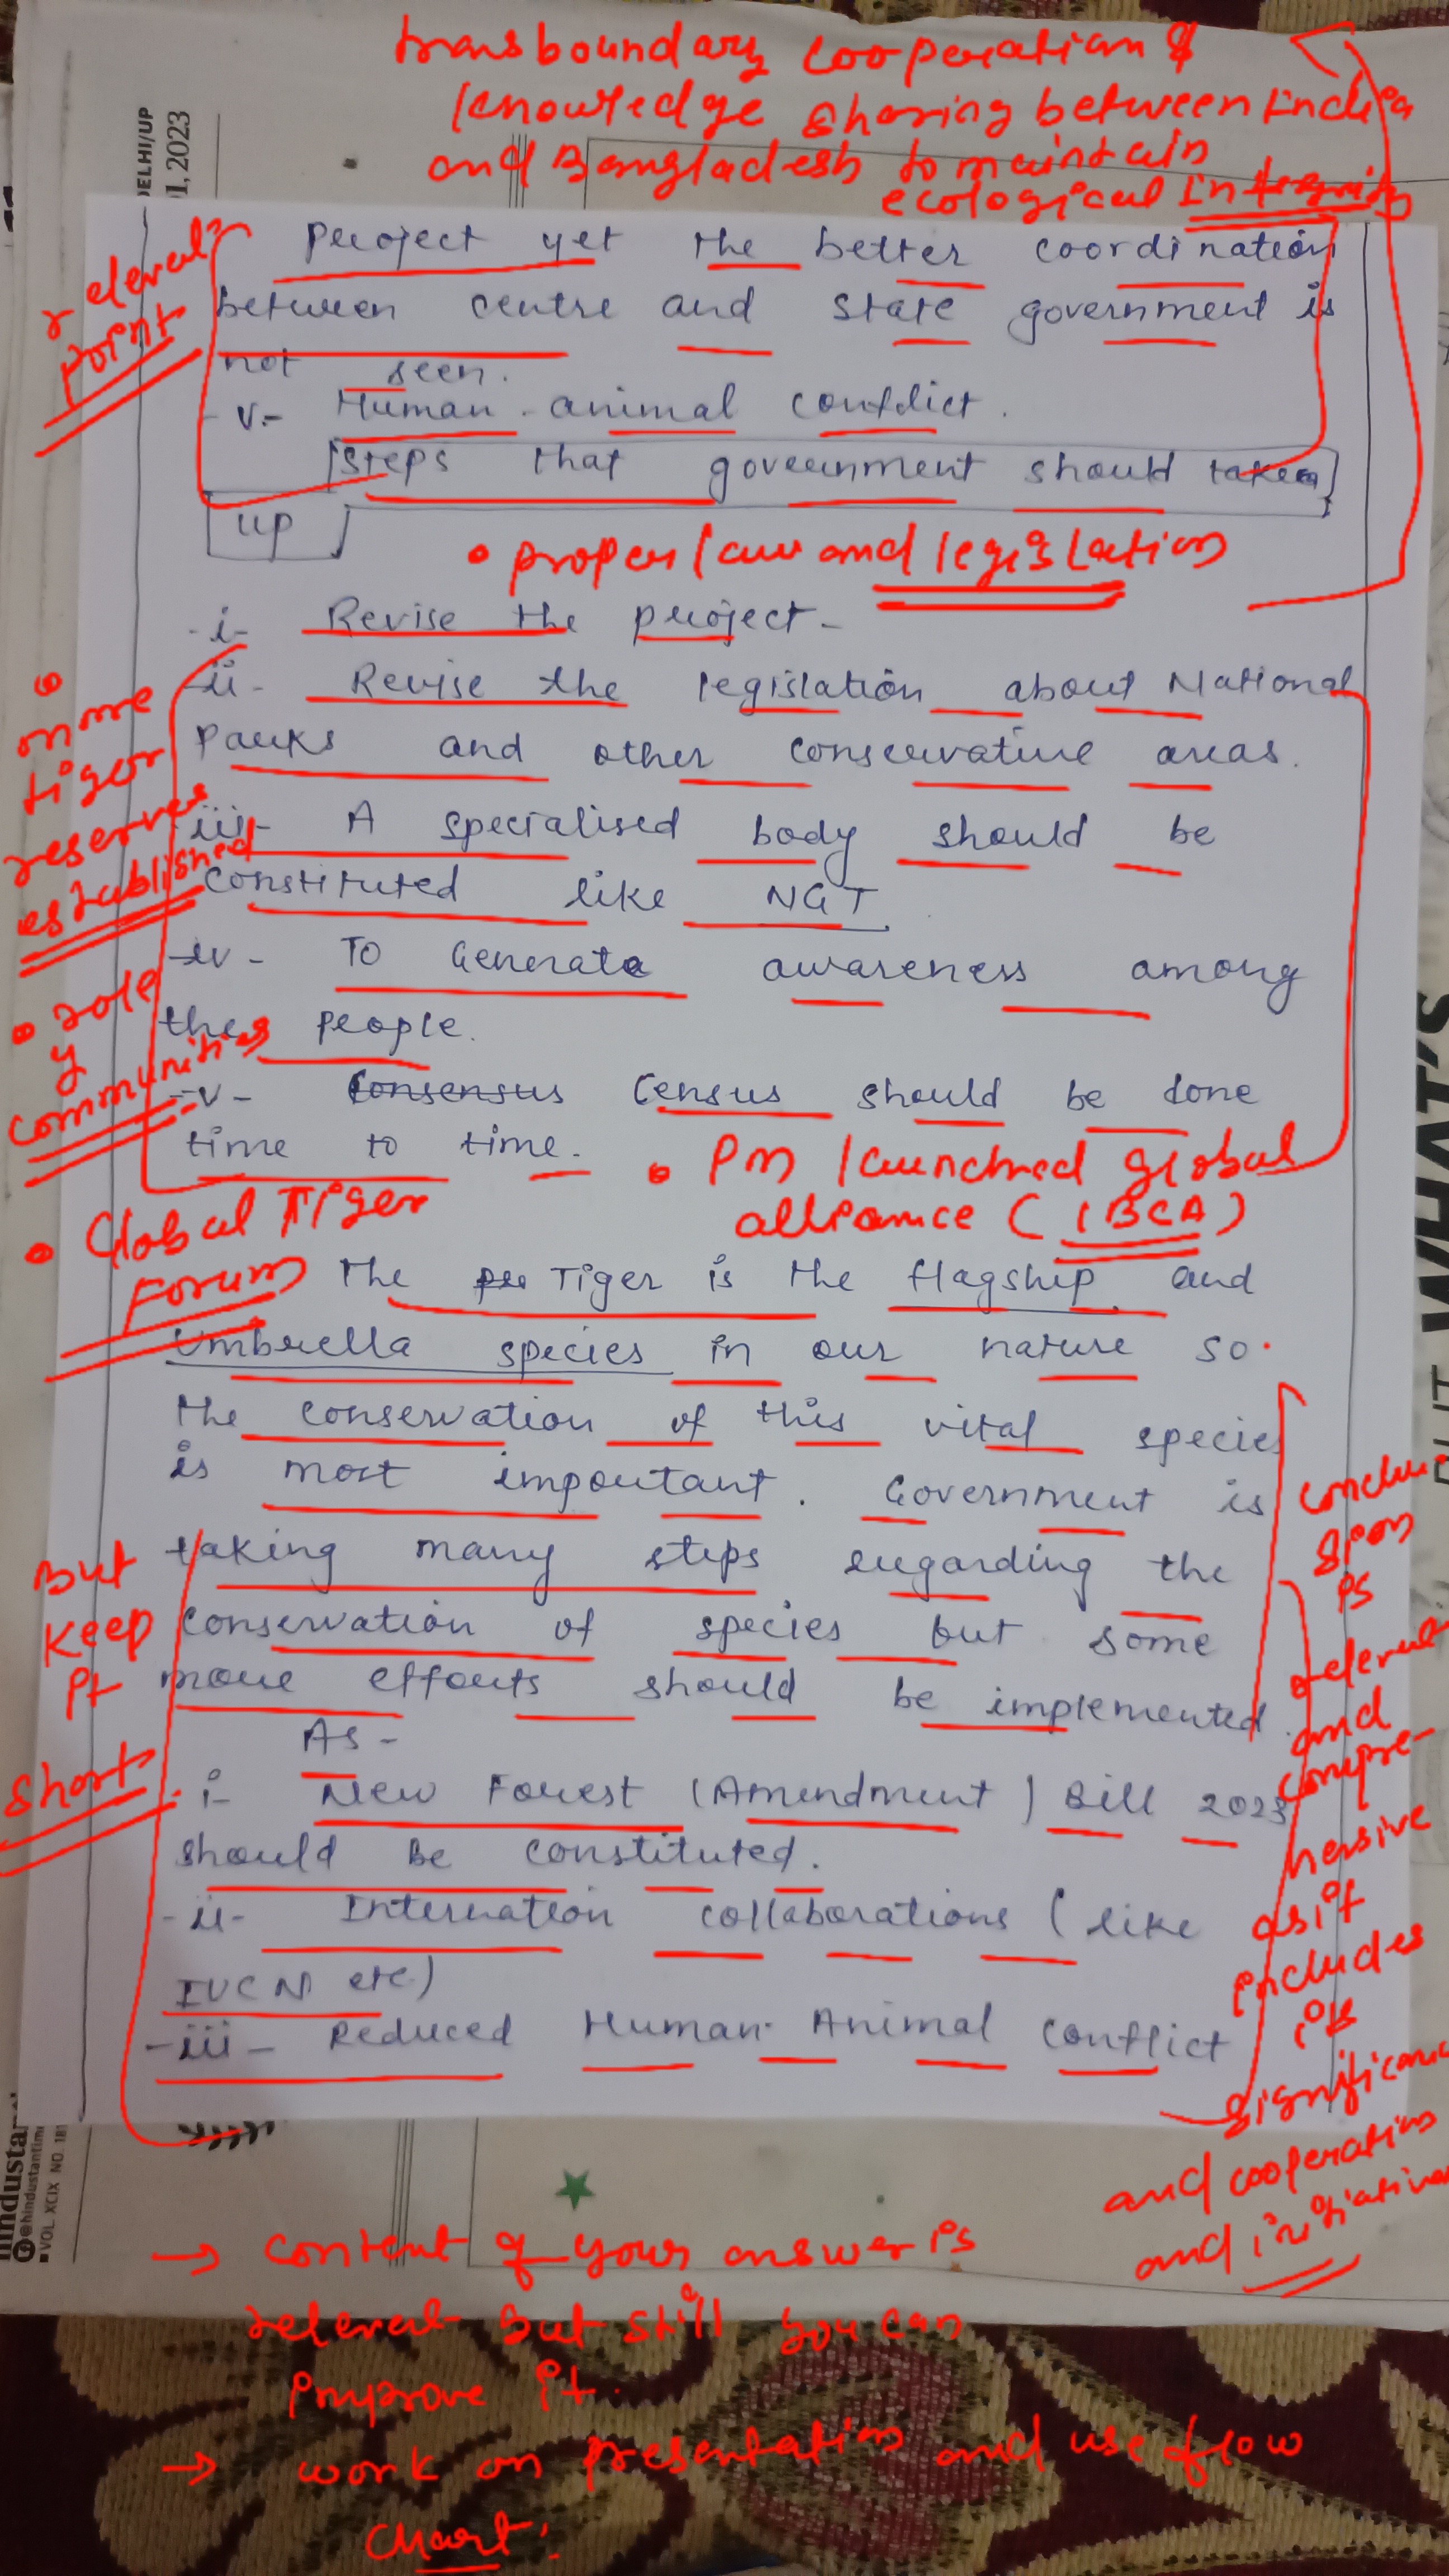 transboundary cooperation &
knowledge sharing between India
and Bangladesh to maintain
ecological Integrity
DELHI/UP
1, 2023
relevant
Point
Project yet the better coordination
between centre and state government is
not seen.
-v- Human-animal conflict.
Steps that government should taken
up
• proper law and legislation
-i- Revise the project-
-ii- Revise the legislation about National
Parks and other conservative areas.
-iii- A specialised body should be
constituted like NGT
-iv- To Generate awareness among
the people.
-v- Consensus Census should be done
time to time.
• more
tiger
reserves
established
• role
of
communities
• PM launched global
alliance (IBCA)
• Global Tiger
Forum
The Tiger is the flagship and
Umbrella species in our nature so
the conservation of this vital species
is most important. Government is
taking many steps regarding the
conservation of species but some
more efforts should be implemented.
As-
-i- New Forest (Amendment) Bill 2023
should be constituted.
-ii- Internation collaborations (like
IUCN etc)
-iii- Reduced Human-Animal Conflict
But
keep
it
short
is
and
compre-
hensive
as it
includes
its
and cooperation
WHAT'S
hindustan
@hindustantimes
VOL. XCIX NO. 181
→ content of your answer is
relevant but still you can
improve it.
→ work on presentation and use flow
chart.